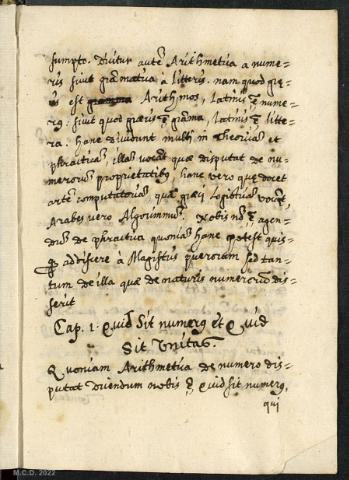 sumpto. Dicitur autē Arithmetica a nume=
ris sicut grāmatica à litteris. nam quod grę=
cis est Arithmos, Latinis ē nume=
rꝰ: sicut quod grecis ē grāma, Latinis ē litte=
ra. Hanc dividunt multi in Theoricā et
phraticā, illā vocāt quæ disputat de nu=
merorū proprietatibꝰ hanc vero quæ docet
artē computatoriā quā græci Logisticā vocāt,
Arabes vero Algorismū. nobis nō ē agen=
dū de phratica quoniā hanc potest quis=
addiscere à Magistris puerorum sed tan=
tum de illa quæ de naturis numerorū dis=
serit
Cap. 1. Quid Sit numerꝰ et Quid
Sit Unitas.
Quoniam Arithmetica de numero dis=
putat dicendum nobis ē, Quid sit numerꝰ,
qui
M.C.D. 2022